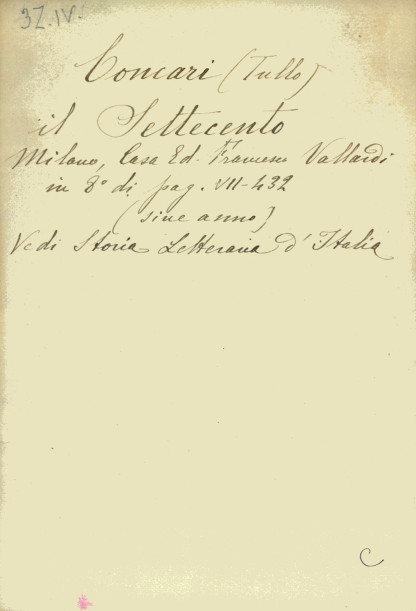 37.IV.
Concari (Tullo)
il Settecento
Milano, Casa Ed. Francesco Vallardi
in 8° di pag. VII-432
(sine anno)
Vedi Storia Letteraria d'Italia
C